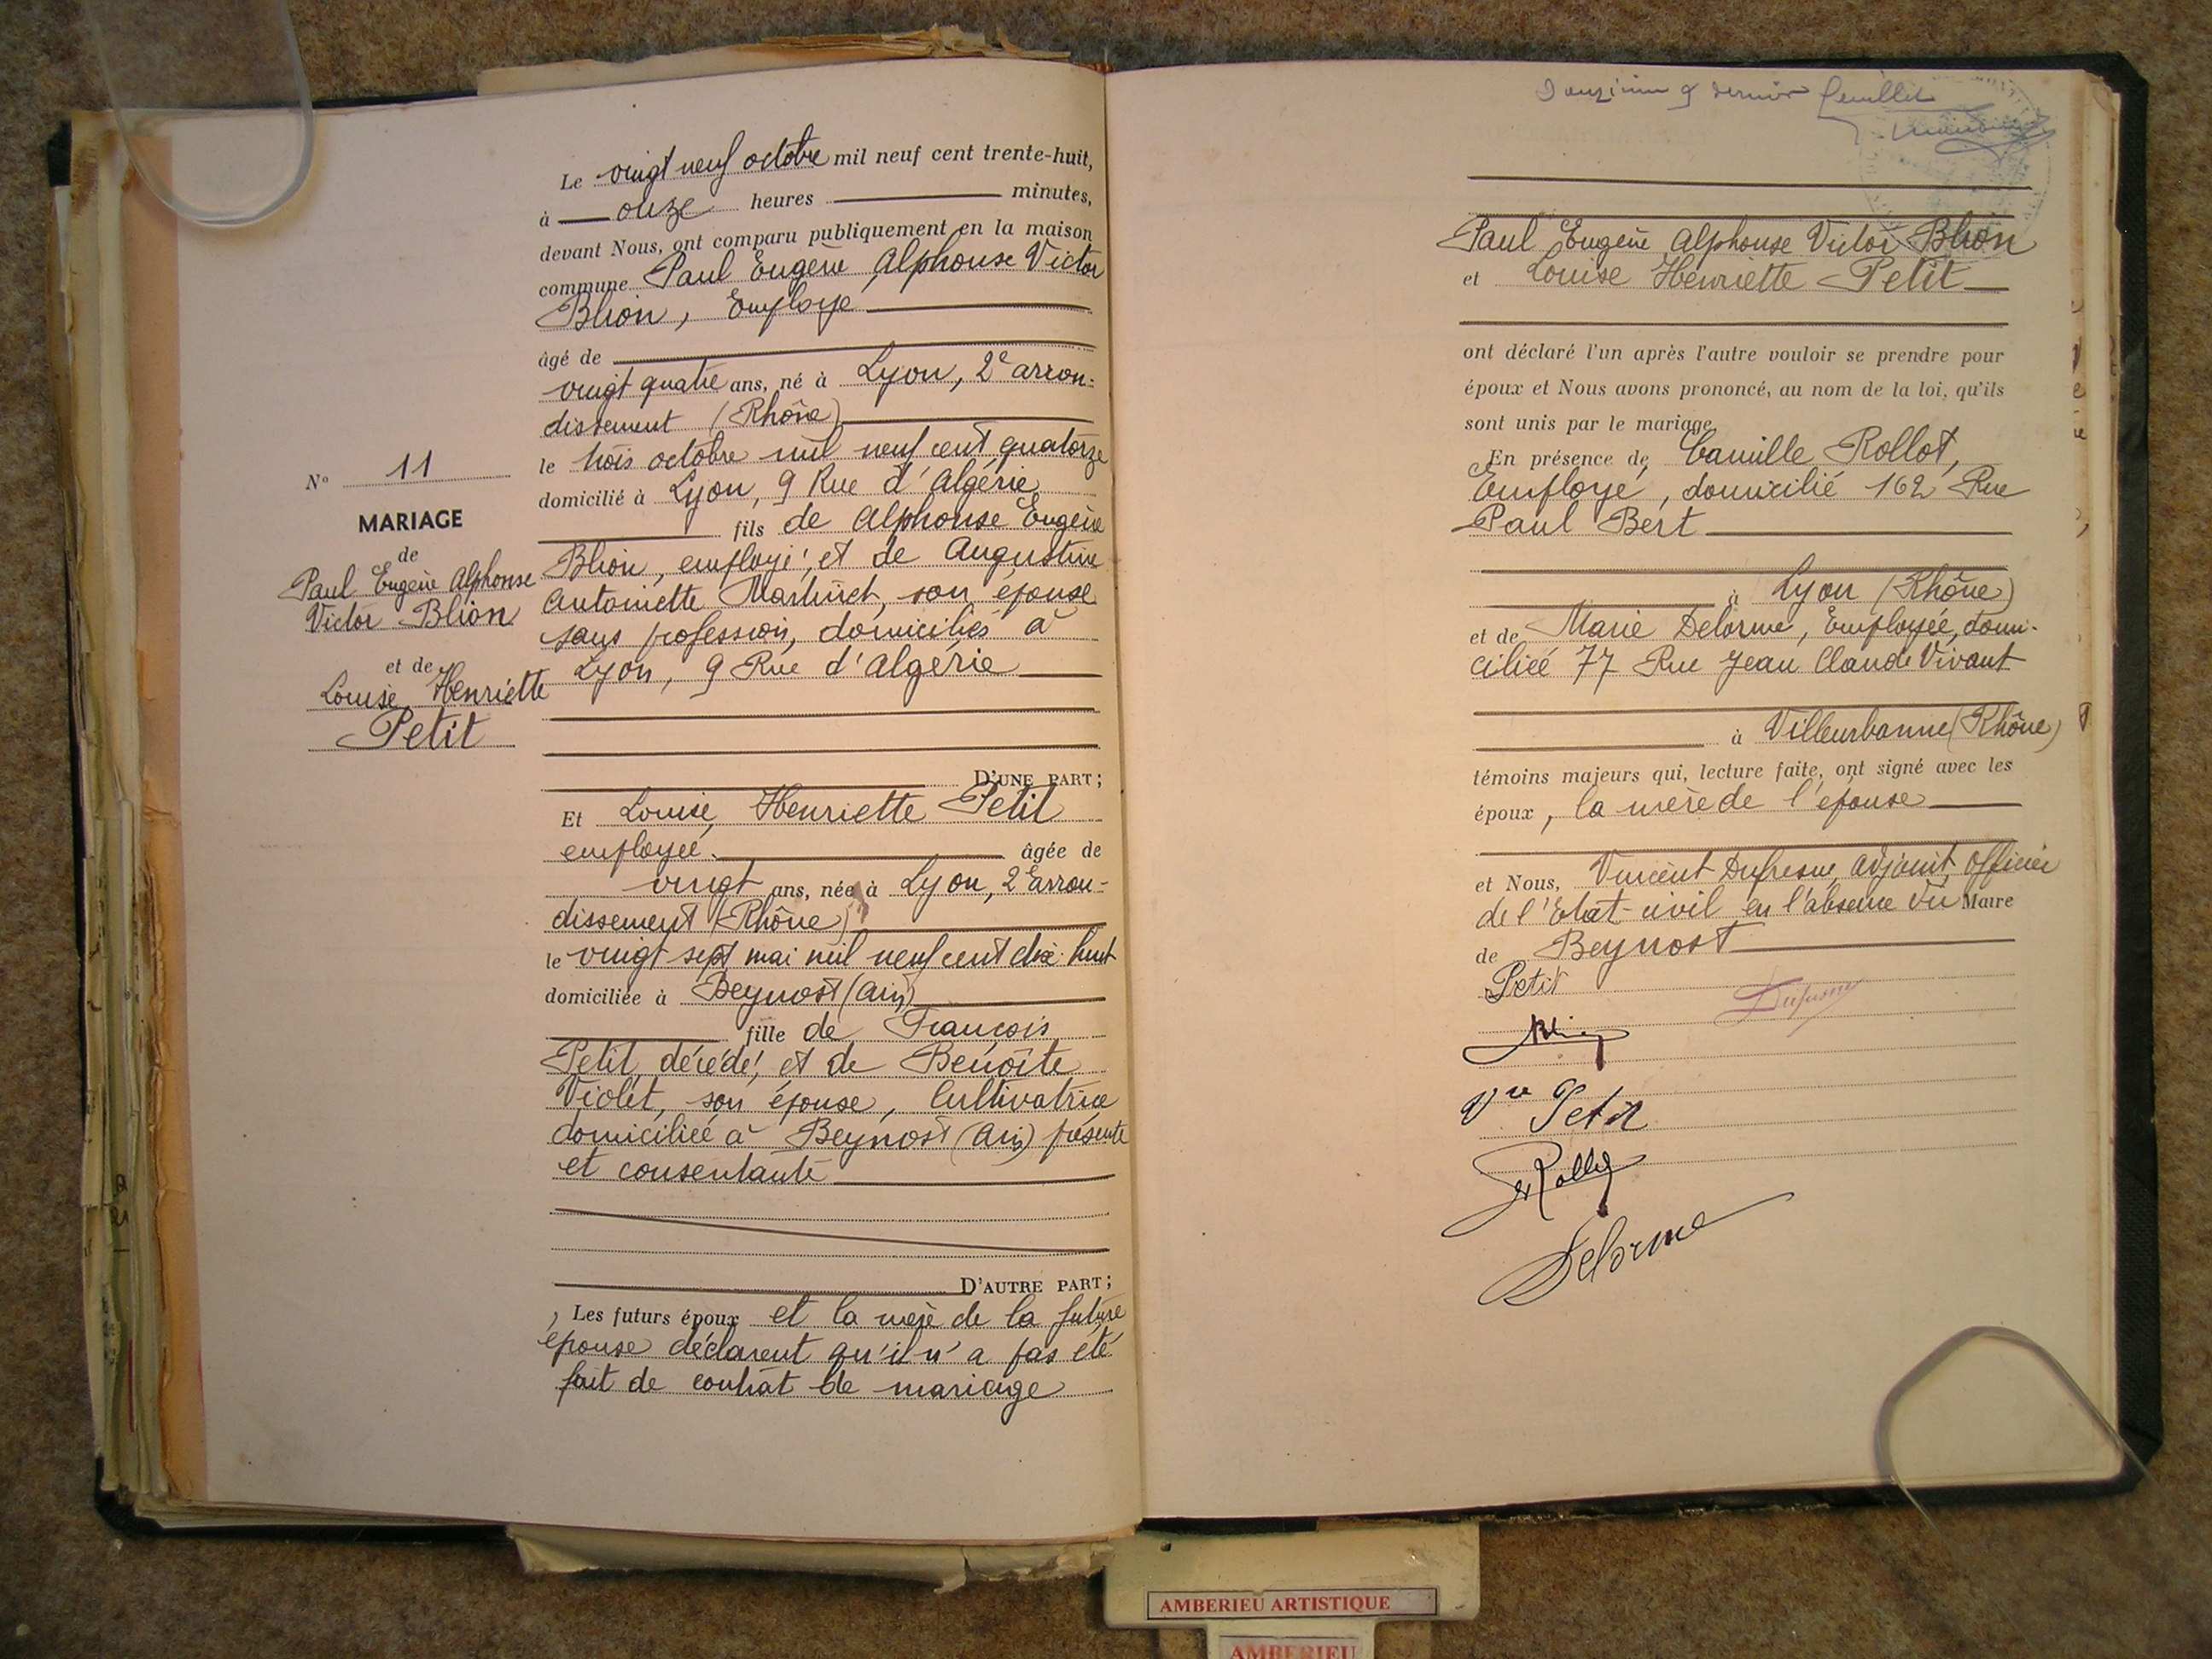 Le vingt neuf octobre mil neuf cent trente-huit,
à onze heures minutes,
devant Nous, ont comparu publiquement en la maison
commune Paul Eugène Alphonse Victor
Blion, Employé
âgé de
vingt quatre ans, né à Lyon, 2e arron-
dissement (Rhône)
le trois octobre mil neuf cent quatorze
domicilié à Lyon, 9 Rue d'Algérie
fils de Alphonse Eugène
Blion, employé, et de Augustine
Antoinette Martinet, son épouse
sans profession, domiciliés à
Lyon, 9 Rue d'Algérie
D'UNE PART;
N° 11
MARIAGE
de
Paul Eugène Alphonse
Victor Blion
et de
Louise Henriette
Petit
Et Louise, Henriette Petit
employée. âgée de
vingt ans, née à Lyon, 2e arron-
dissement (Rhône)
le vingt sept mai mil neuf cent dix-huit
domiciliée à Beynost (Ain)
fille de François
Petit, décédé, et de Benoîte
Violet, son épouse, Cultivatrice
domiciliée à Beynost (Ain) présente
et consentante
D'AUTRE PART;
Les futurs époux et la mère de la future
épouse déclarent qu'il n'a pas été
fait de contrat de mariage
Douzième et dernier feuillet
Paul Eugène Alphonse Victor Blion
et Louise Henriette Petit
ont déclaré l'un après l'autre vouloir se prendre pour
époux et Nous avons prononcé, au nom de la loi, qu'ils
sont unis par le mariage.
En présence de Camille Rollot,
Employé, domicilié 162 Rue
Paul Bert
à Lyon (Rhône)
et de Marie Delorme, Employée, domi-
ciliée 77 Rue Jean Claude Vivant
à Villeurbanne (Rhône)
témoins majeurs qui, lecture faite, ont signé avec les
époux, la mère de l'épouse
et Nous, Vincent Dufresne, adjoint, Officier
de l'Etat-civil en l'absence du Maire
de Beynost
Petit
Dufresne
Blion
Vve Petit
Delorme
AMBERIEU ARTISTIQUE
AMBERIEU